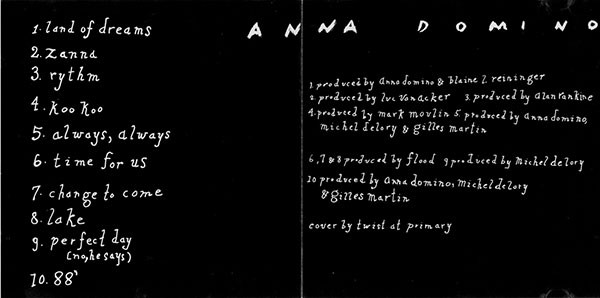 1. land of dreams
2. zanna
3. rythm
4. koo koo
5. always, always
6. time for us
7. change to come
8. lake
9. perfect day
(no, he says)
10. 88'
ANNA DOMINO
1. produced by anna domino & blaine l. reininger
2. produced by luc van acker 3. produced by alan rankine
4. produced by mark moulin 5. produced by anna domino,
michel delory & gilles martin
6, 7 & 8 produced by flood 9 produced by michel delory
10 produced by anna domino, michel delory
& gilles martin
cover by twist at primary